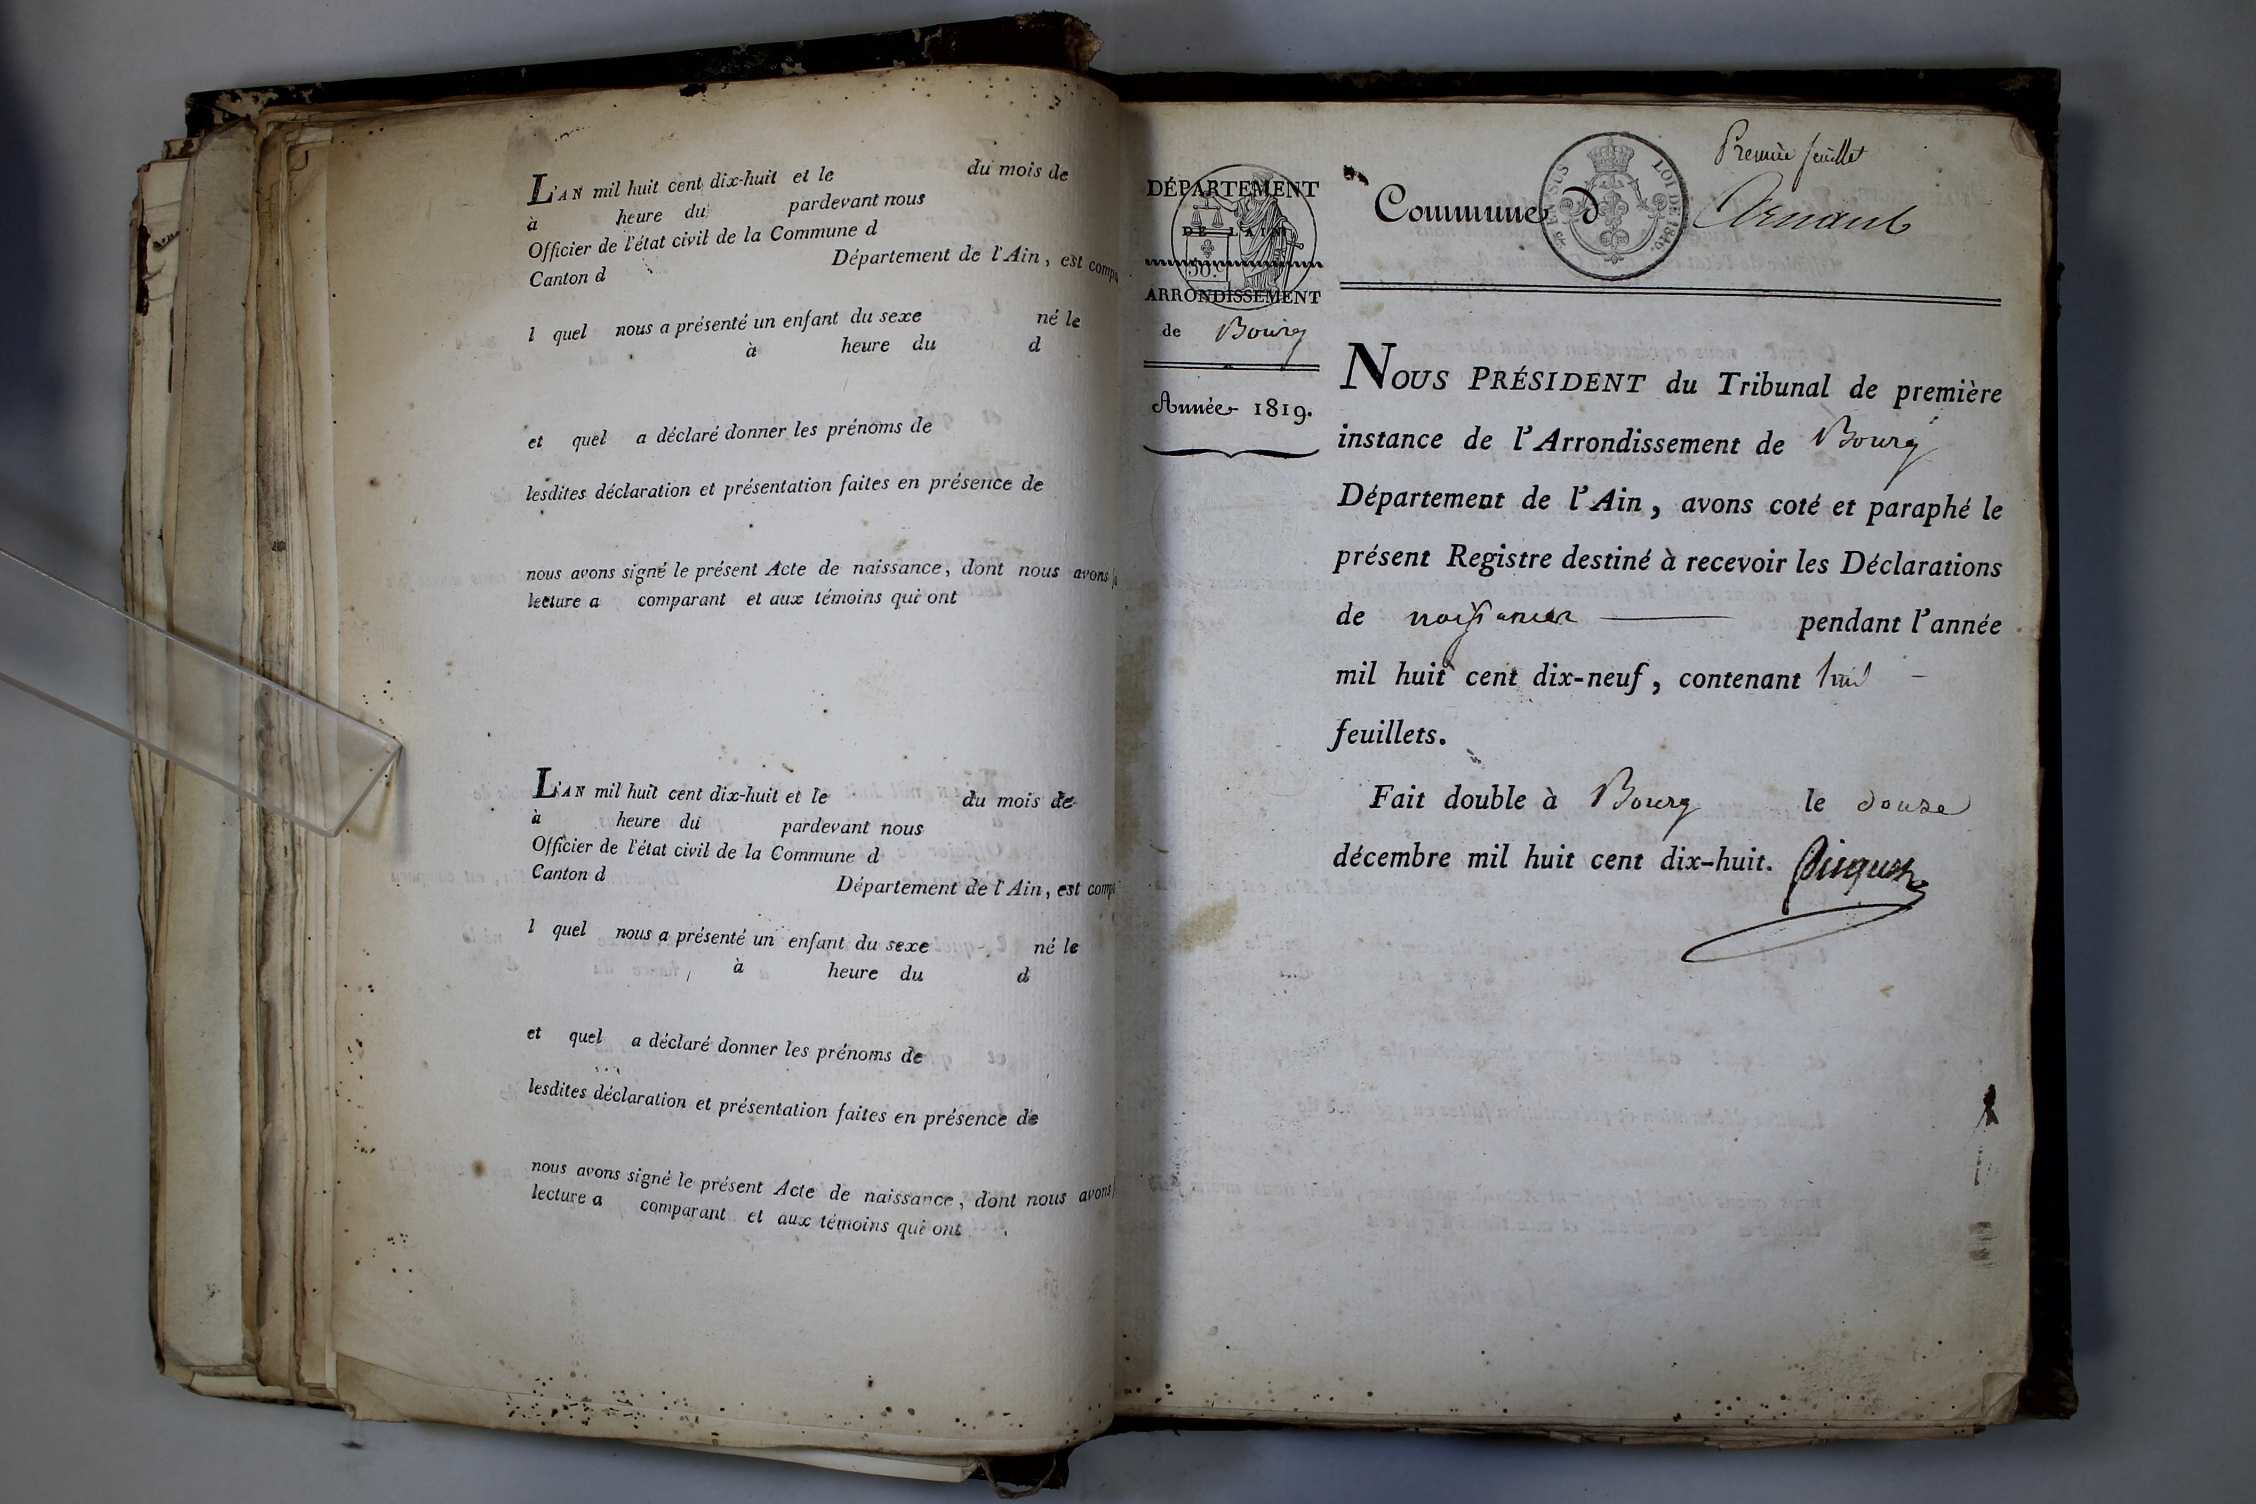 L'AN mil huit cent dix-huit et le du mois de
à heure du pardevant nous
Officier de l'état civil de la Commune d
Canton d Département de l'Ain, est comp
l quel nous a présenté un enfant du sexe né le
à heure du d
et quel a déclaré donner les prénoms de
lesdites déclaration et présentation faites en présence de
nous avons signé le présent Acte de naissance, dont nous avons
lecture a comparant et aux témoins qui ont
L'AN mil huit cent dix-huit et le du mois de
à heure du pardevant nous
Officier de l'état civil de la Commune d
Canton d Département de l'Ain, est comp
l quel nous a présenté un enfant du sexe né le
à heure du d
et quel a déclaré donner les prénoms de
lesdites déclaration et présentation faites en présence de
nous avons signé le présent Acte de naissance, dont nous avons
lecture a comparant et aux témoins qui ont
DÉPARTEMENT
DE L'AIN
50 c
ARRONDISSEMENT
de Bourg
Année 1819.
Premier feuillet
Commune d
LOI DE 1816.
NOUS PRÉSIDENT du Tribunal de première
instance de l'Arrondissement de Bourg
Département de l'Ain, avons coté et paraphé le
présent Registre destiné à recevoir les Déclarations
de naissances pendant l'année
mil huit cent dix-neuf, contenant huit
feuillets.
Fait double à Bourg le douze
décembre mil huit cent dix-huit.